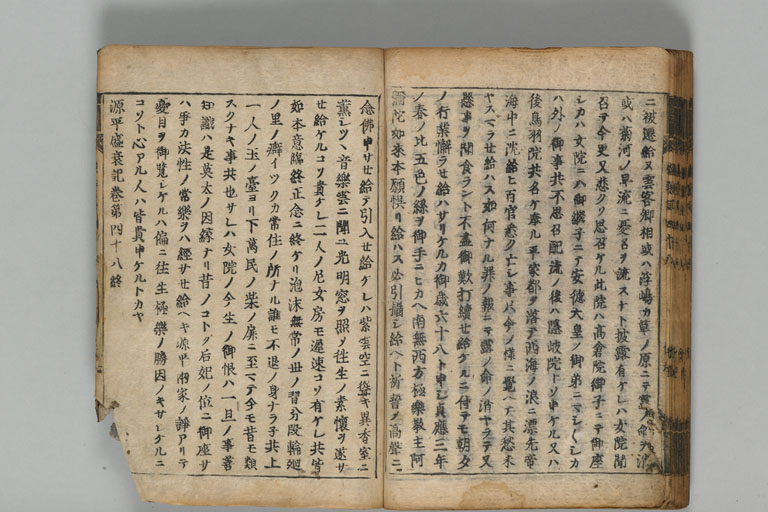 ニ被遷給又雲客卿相或ハ浮嶋カ草ノ原ニテ露命ヲ消
或ハ菊河ノ早流ニ憂名ヲ流スナト披露有ケレハ女院聞
召テ今更又悲クソ思召ケル此院ハ高倉院御子ニテ御座
シカハ女院ニハ御継子ニテ安德天皇ノ御弟ニマシ〱シカ
ハ外ノ御事共不思召配流ノ後ハ隠岐院トソ申ケル又ハ
後鳥羽院共名ケ奉ル平家都ヲ落テ西海ノ浪ニ漂先帝
海中ニ沈給ヒ百官悉クシ事只今ノ様ニ覺ヘテ其愁未
ヤスマラせ給ハス如何ナル罪ノ報ニテ露ノ命ノ消ヤラテ又
懸事ヲ聞食ラント不盡御歎打續せ給ケルニ付テモ朝夕
ノ行業懈ラせ給ハサリケルカ御歳六十八ト申シ貞應三年
ノ春ノ比五色ノ絲ヲ御手ニヒカヘ南無西方極樂敎主阿
彌陀如來本願悞リ給ハス必引攝シ給ヘト祈誓ヲ高聲ニ
念佛申サせ給テ引入せ給ケレハ紫雲空ニ聳キ異香室ニ
薫シツヽ音樂雲ニ聞ユ光明窓ヲ照シ往生ノ素懐ヲ遂サ
せ給ケルコソ貴ケレ二人ノ尼女房モ遲速コソ有ケレ共皆
如本意臨終正念ニ終ケリ泡沫無常ノ世ノ習分段輪廻
ノ里ノ癖イツクカ常住ノ所ナル誰モ不退ノ身ナラ子共上
一人ノ玉ノ臺ヨリ下萬民ノ柴ノ扉ニ至マテ今モ昔モ類
スクナキ事共也サレハ女院ノ今生ノ御恨ハ一旦ノ事善
知識ハ是莫太ノ因縁ナリ昔ノコトク后妃ノ位ニ御座サ
ハ爭カ法性ノ常樂ヲハ經サせ給ヘキ源平兩家ノ諍アリテ
憂目ヲ御覧シケルハ偏ニ往生極樂ノ勝因ノキサシケルニ
コソト心アル人ハ皆貴申ケルトカヤ
源平盛衰記卷第四十八終